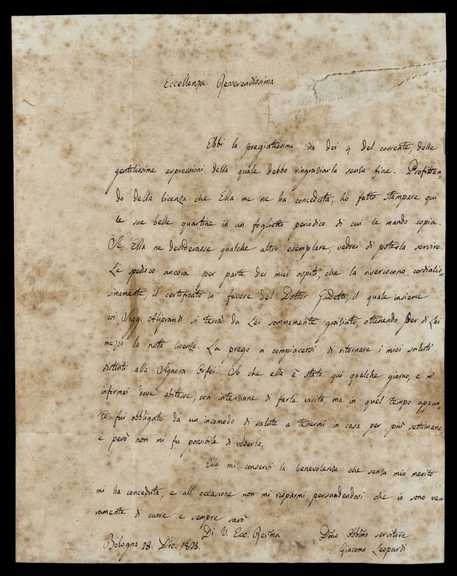 Eccellenza Reverendissima
Ebbi la pregiatissima sua dei 9 del corrente, delle
gentilissime espressioni della quale debbo ringraziarla senza fine. Profittan-
do della licenza che Ella me ne ha conceduta, ho fatto stampare qui
le sue belle quartine in un foglietto periodico di cui le mando copia.
Se Ella ne desiderasse qualche altro esemplare, vedrei di poterla servire.
Le spedisco ancora per parte dei miei ospiti, che la riveriscono cordialis-
simamente, il certificato in favore del Dottor il quale insieme
con Aliprandi si terrà da Lei sommamente graziato, ottenendo per di Lei
mezzo la nota licenza. La prego a compiacersi di ritornare i miei saluti
distinti alla Signora So che ella è stata qui qualche giorno, e m'
informai dove abitasse, con intenzione di farle visita, ma in quel tempo appun-
to fui obbligato da un incomodo di salute a tenermi in casa per più settimane
e però non mi fu possibile di vederla.
Ella mi conservi la benevolenza che senza mio merito
mi ha conceduta, e all'occasione non mi risparmi, persuadendosi che io sono vera-
mente di cuore e sempre sarò
Di V. Ecc. Rev.ma
Bologna 28. Dic. 1825.
Dmo Obblmo servitore
Giacomo Leopardi